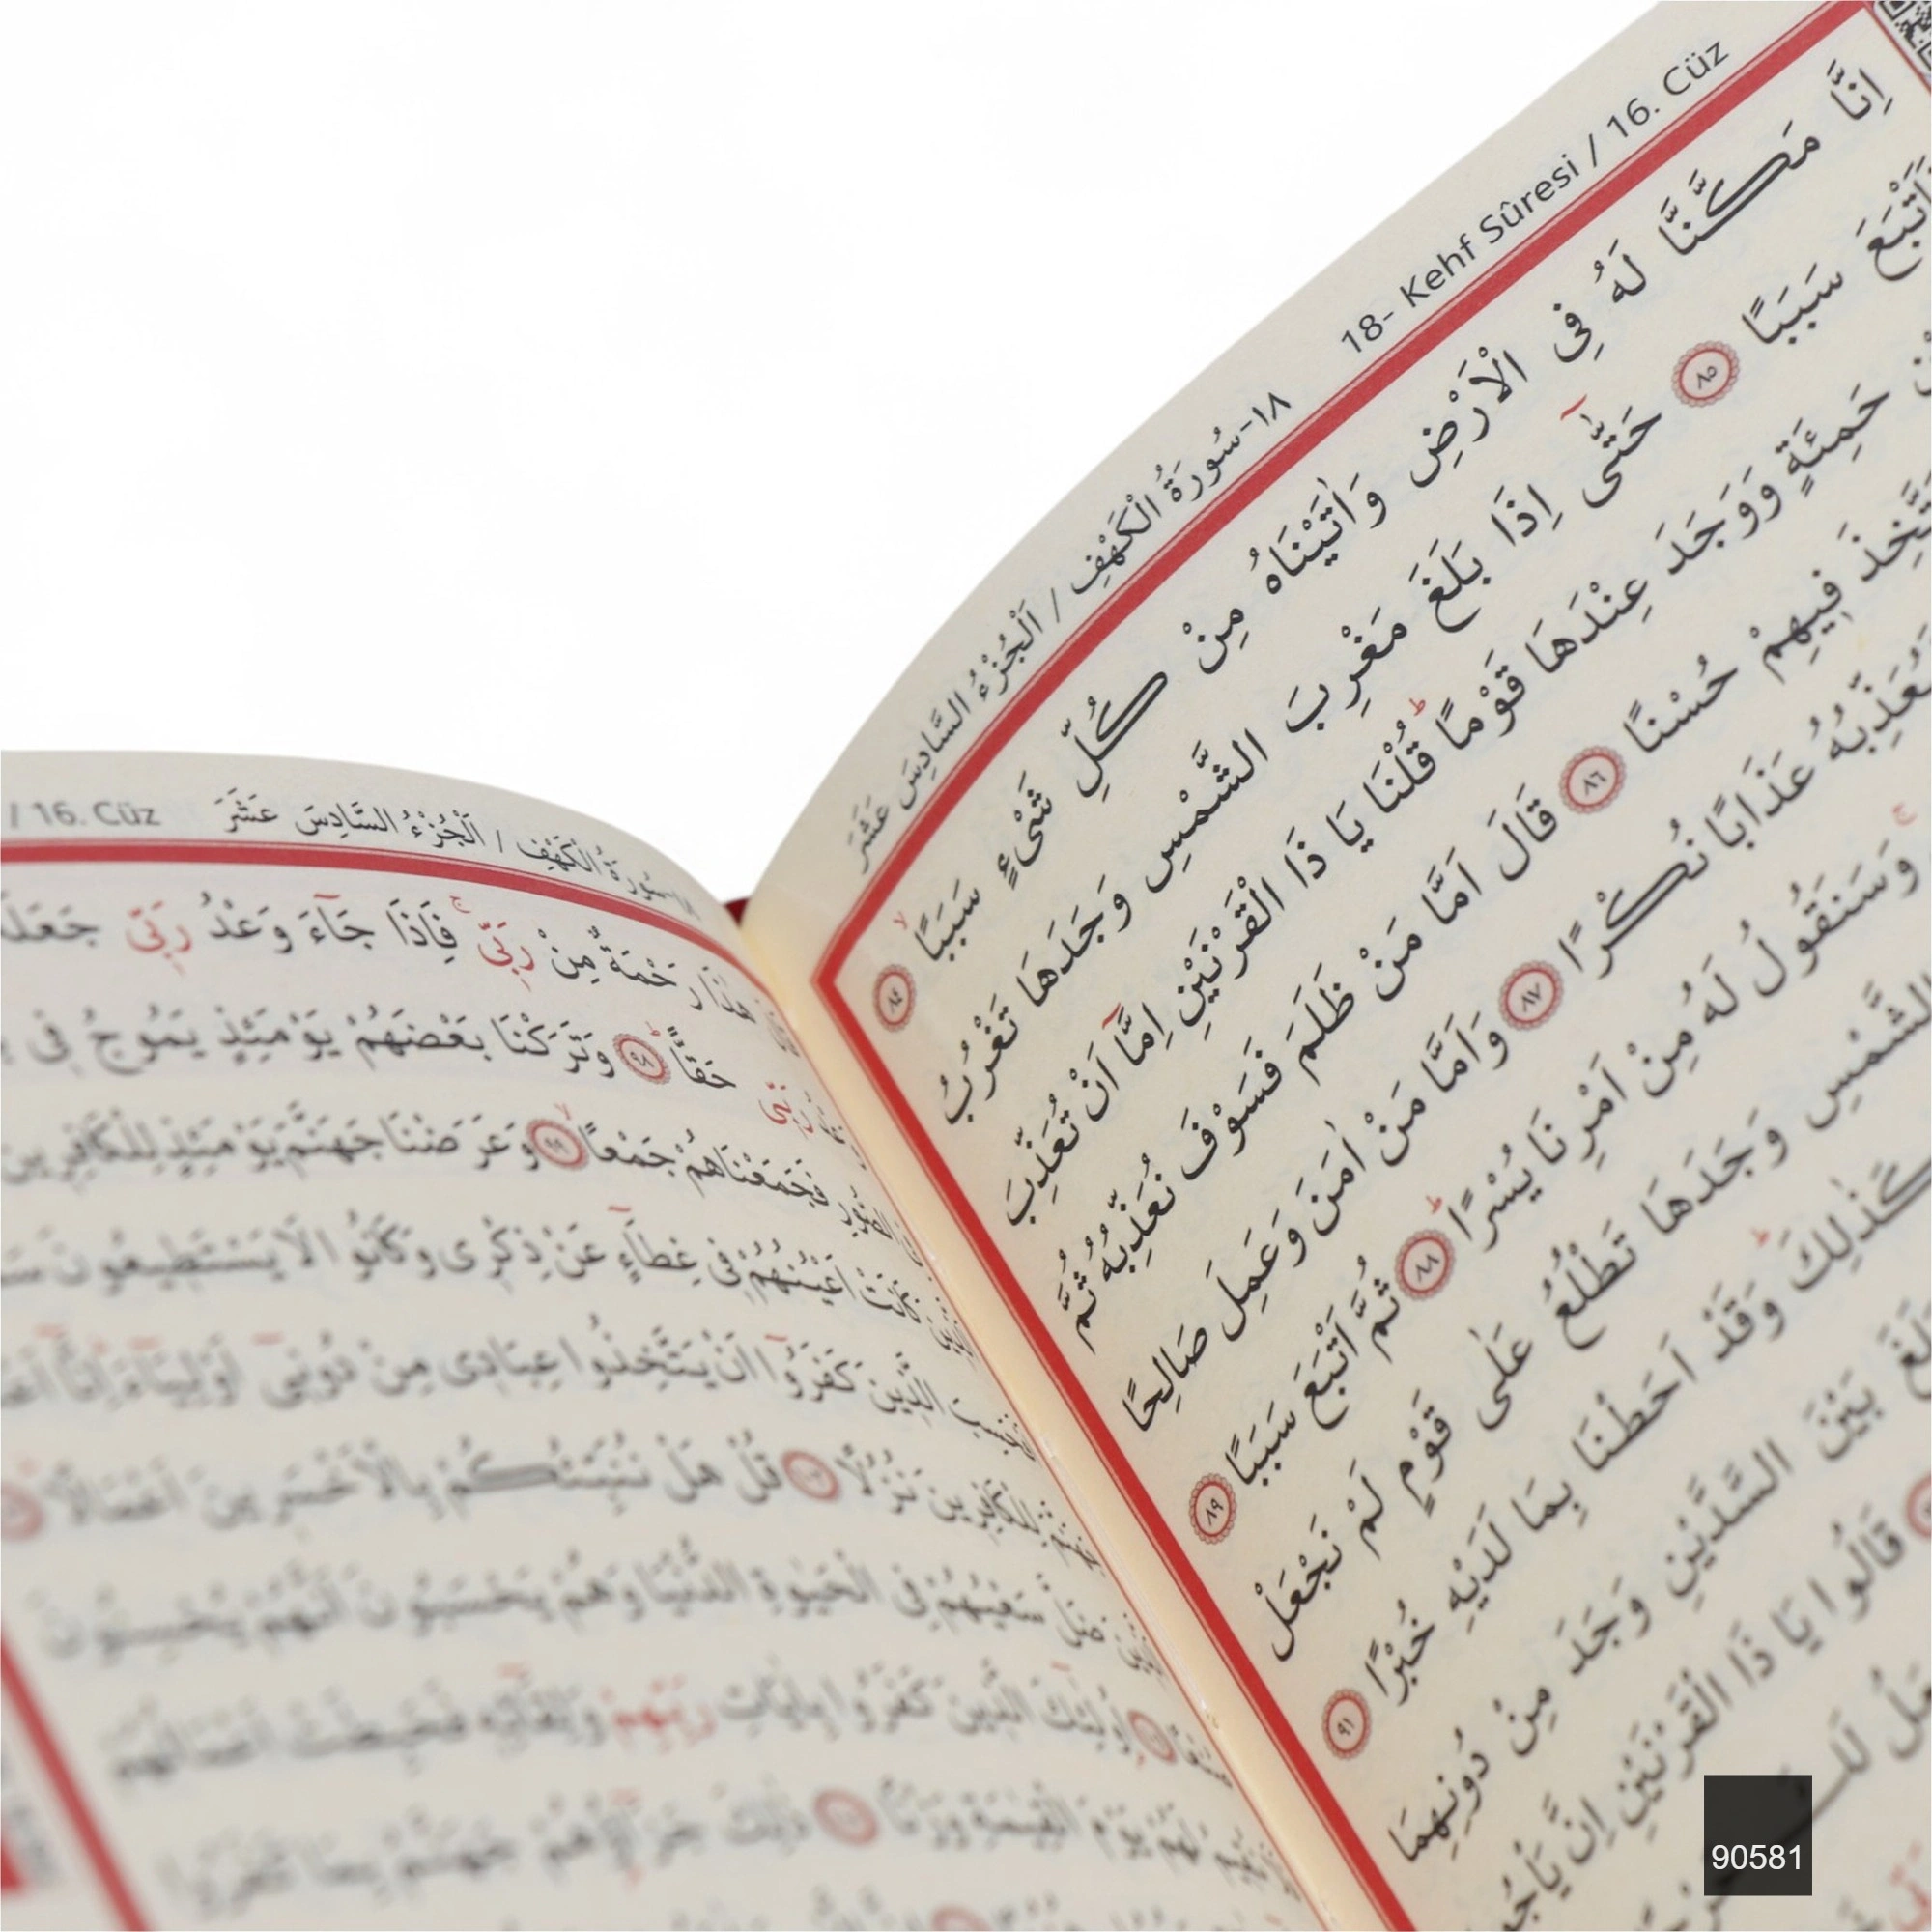 18- Kehf Sûresi / 16. Cüz
١٨-سُورَةُ الْكَهْفِ / اَلْجُزْءُ السَّادِسَ عَشَرَ
اِنَّا مَكَّنَّا لَهُ فِي الْاَرْضِ وَاٰتَيْنَاهُ مِنْ كُلِّ شَيْءٍ سَبَبًاۙ ﴿٨٤﴾
فَاَتْبَعَ سَبَبًا ﴿٨٥﴾ حَتّٰٓى اِذَا بَلَغَ مَغْرِبَ الشَّمْسِ وَجَدَهَا تَغْرُبُ
حَمِئَةٍ وَوَجَدَ عِنْدَهَا قَوْمًاۜ قُلْنَا يَا ذَا الْقَرْنَيْنِ اِمَّٓا اَنْ تُعَذِّبَ
تَتَّخِذَ فِيهِمْ حُسْنًا ﴿٨٦﴾ قَالَ اَمَّا مَنْ ظَلَمَ فَسَوْفَ نُعَذِّبُهُ ثُمَّ
فَيُعَذِّبُهُ عَذَابًا نُكْرًا ﴿٨٧﴾ وَاَمَّا مَنْ اٰمَنَ وَعَمِلَ صَالِحًا
وَسَنَقُولُ لَهُ مِنْ اَمْرِنَا يُسْرًاۜ ﴿٨٨﴾ ثُمَّ اَتْبَعَ سَبَبًا ﴿٨٩﴾
الشَّمْسِ وَجَدَهَا تَطْلُعُ عَلٰى قَوْمٍ لَمْ نَجْعَلْ
كَذٰلِكَۜ وَقَدْ اَحَطْنَا بِمَا لَدَيْهِ خُبْرًا ﴿٩١﴾
بَيْنَ السَّدَّيْنِ وَجَدَ مِنْ دُونِهِمَا
قَالُوا يَا ذَا الْقَرْنَيْنِ اِنَّ
/ 16. Cüz
١٨-سُورَةُ الْكَهْفِ / اَلْجُزْءُ السَّادِسَ عَشَرَ
هٰذَا رَحْمَةٌ مِنْ رَبّ۪يۚ فَاِذَا جَٓاءَ وَعْدُ رَبّ۪ي
رَبّ۪ي حَقًّاۜ ﴿٩٨﴾ وَتَرَكْنَا بَعْضَهُمْ يَوْمَئِذٍ يَمُوجُ ف۪ي
الصُّورِ فَجَمَعْنَاهُمْ جَمْعًاۙ ﴿٩٩﴾ وَعَرَضْنَا جَهَنَّمَ يَوْمَئِذٍ لِلْكَافِر۪ينَ
كَانَتْ اَعْيُنُهُمْ ف۪ي غِطَٓاءٍ عَنْ ذِكْر۪ي وَكَانُوا لَا يَسْتَط۪يعُونَ
الَّذ۪ينَ كَفَرُٓوا اَنْ يَتَّخِذُوا عِبَاد۪ي مِنْ دُون۪ٓي اَوْلِيَٓاءَ
لِلْكَافِر۪ينَ نُزُلًا قُلْ هَلْ نُنَبِّئُكُمْ بِالْاَخْسَر۪ينَ اَعْمَالًا
ضَلَّ سَعْيُهُمْ فِي الْحَيٰوةِ الدُّنْيَا وَهُمْ يَحْسَبُونَ اَنَّهُمْ يُحْسِنُونَ
اُو۬لٰٓئِكَ الَّذ۪ينَ كَفَرُوا بِاٰيَاتِ رَبِّهِمْ وَلِقَٓائِه۪ فَحَبِطَتْ اَعْمَالُهُمْ
لَهُمْ يَوْمَ الْقِيٰمَةِ وَزْنًا ذٰلِكَ جَزَٓاؤُ۬هُمْ جَهَنَّمُ بِمَا كَفَرُوا
90581